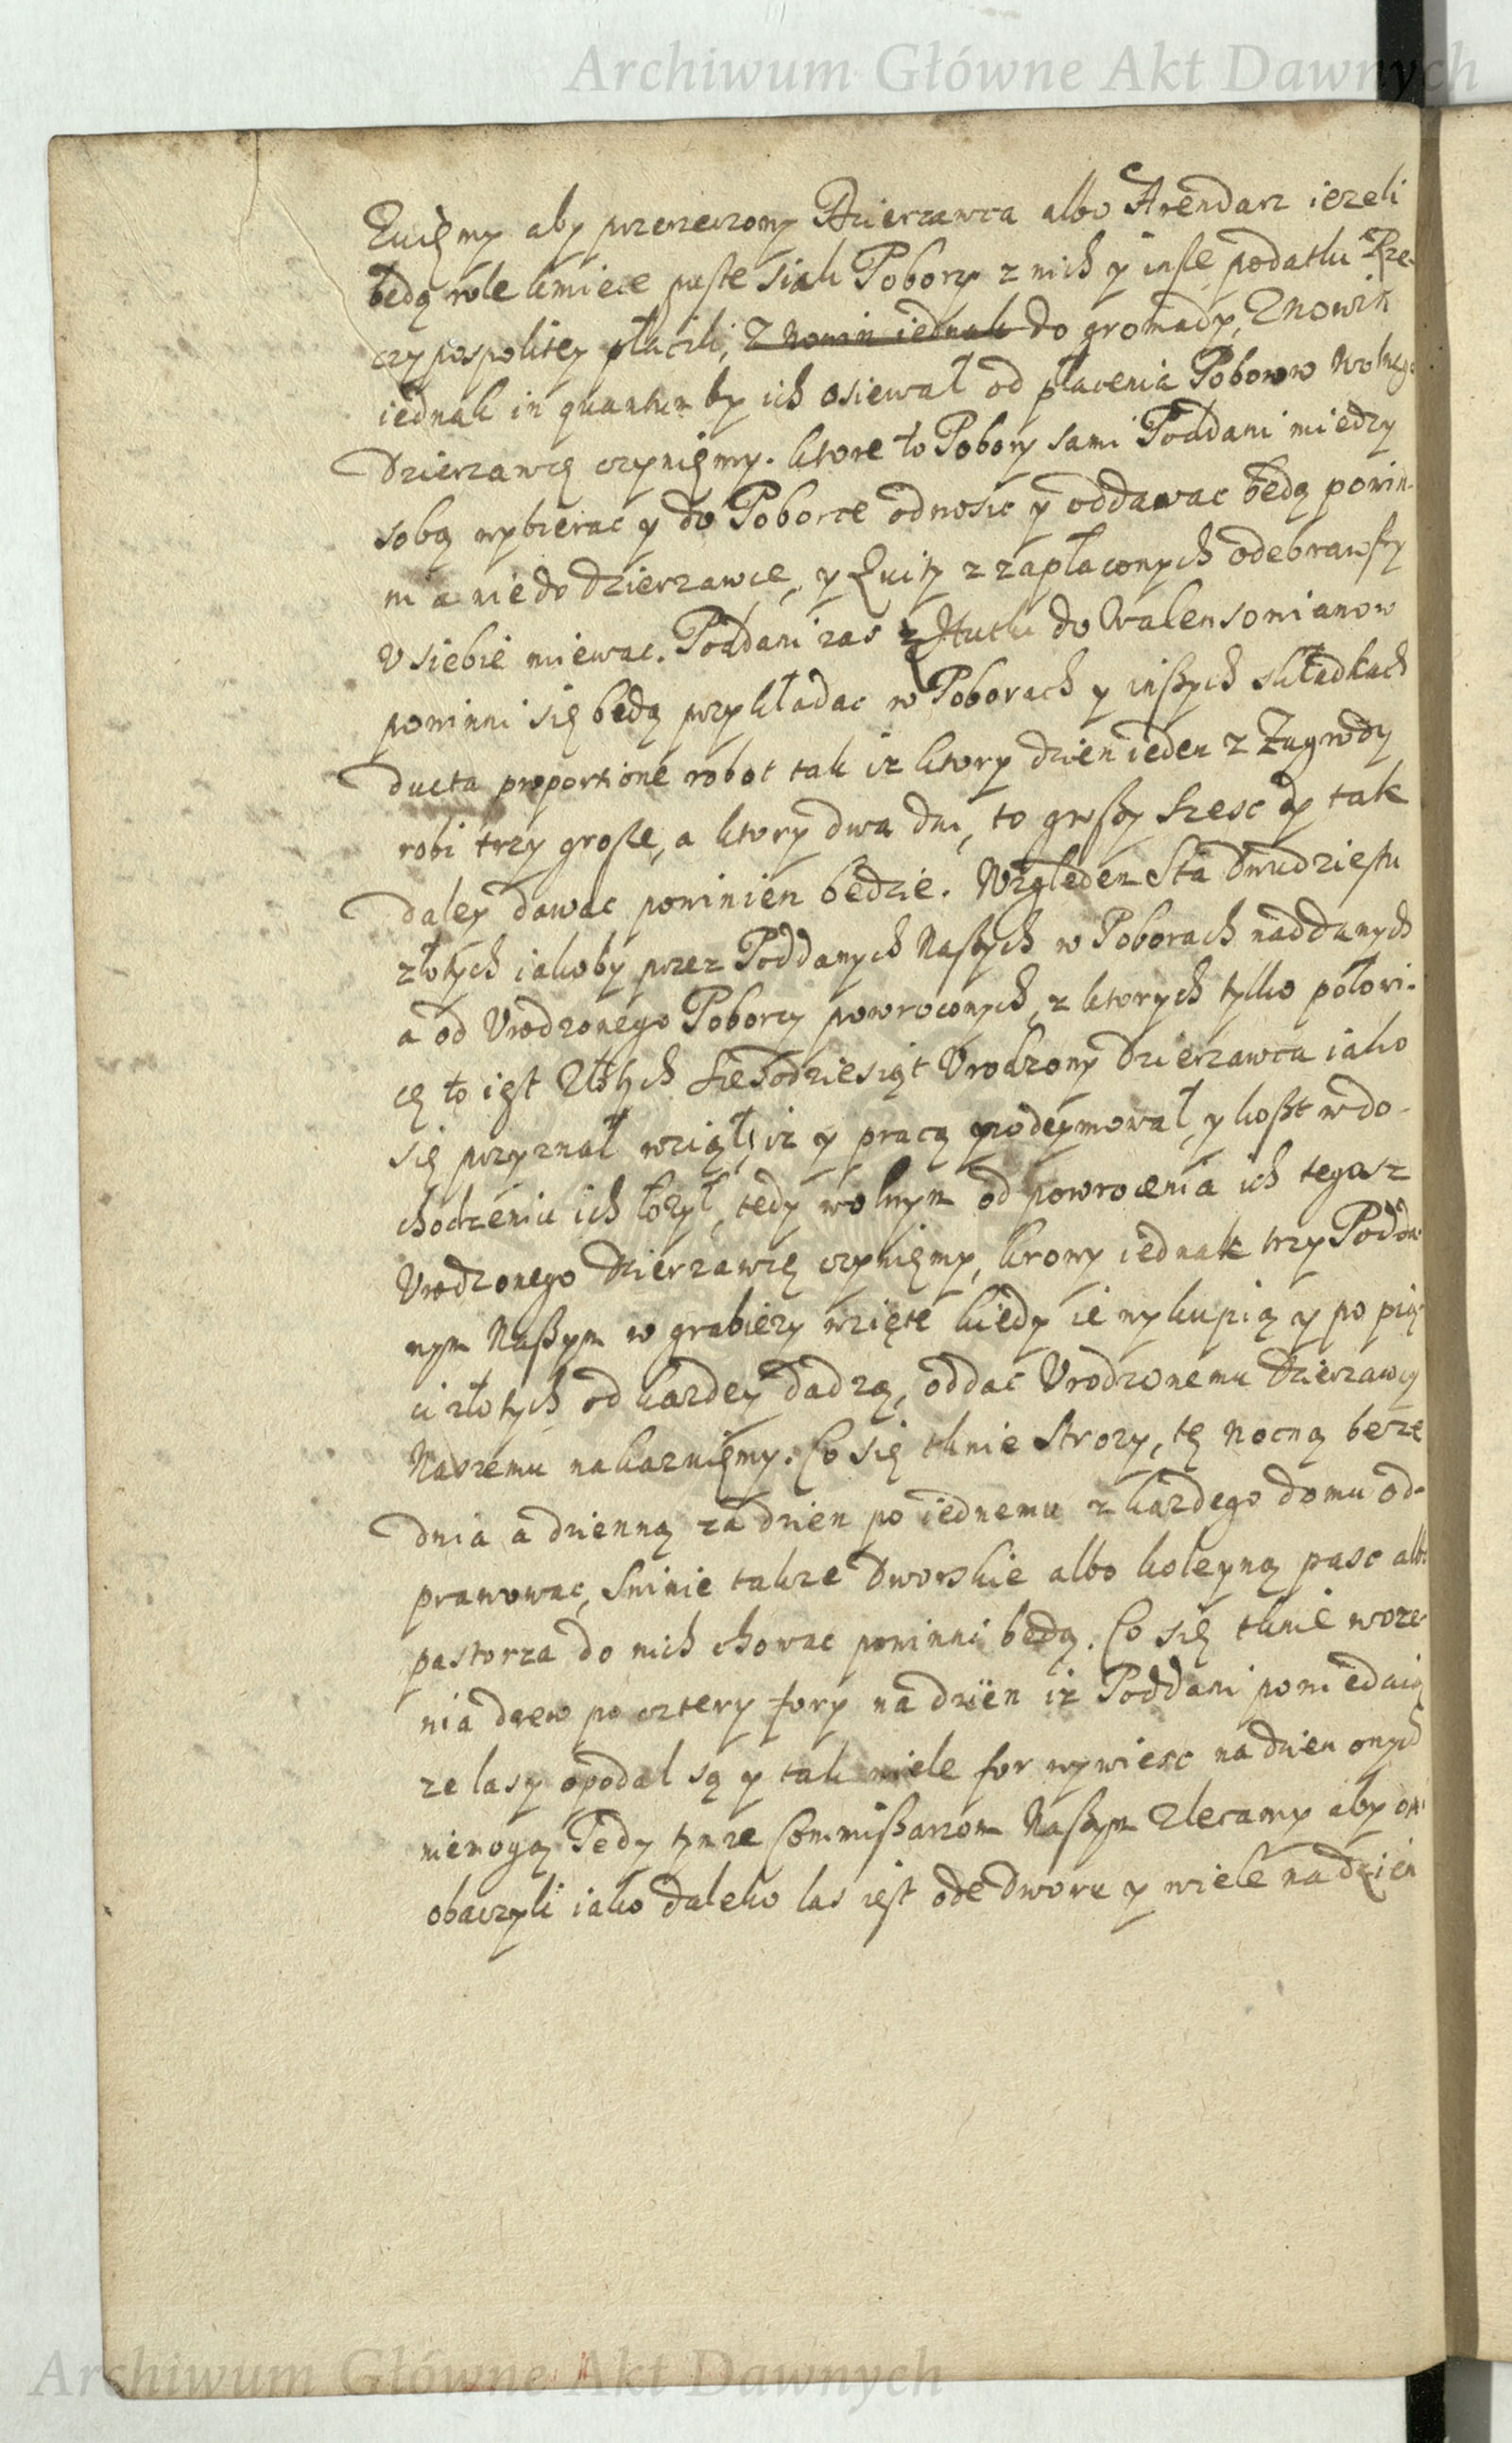 Archiwum Główne Akt Dawnych
Zuięmy aby przerzeczony Dzierzawca albo Arendarz iezeli
będą role kmiece puste siali Pobory z nich y insze podatki Rze-
czypospolitey płacili, Z nowin iednak do gromady, Z nowin
iednak in quantum by ich osiewał od płacenia Poborow wolnego
Dzierzawcę czynięmy. ktore to Pobory sami Poddani miedzy
sobą wybierac y do Poborce odnosic y oddawac będą powin-
ni a nie do dzierzawce, y Quity z zapłaconych odebrawszy
V siebie miewac. Poddani zas z Hutki do Walensonianow
powinni się będą przykładac w Poborach y inszych składkach
ducta proportione robot tak iz ktory dzien ieden z Zagrody
robi trzy grosze, a ktory dwa dni, to groszy szesc y tak
daley dawac powinien będzie. Względem Sta Dwudziestu
złotych iakoby przez Poddanych Naszych w Poborach naddanych
a od Vrodzonego Poborcy powroconych, z ktorych tylko połowi-
cę to iest Złotych sześdziesiąt Vrodzony Dzierzawca iako
się przyznał wziął, iz y pracą podeymował, y koszt w do-
chodzeniu ich łozył, tedy wolnym od powrocenia ich tegosz
Vrodzonego Dzierzawcę czynięmy, krowy iednak trzy Podda-
nym Naszym w grabiezy wzięte kiedy ie wykupią y po pię-
ci złotych od kazdey dadzą, oddac Vrodzonemu Dzierzawcy
Naszemu nakazuięmy. Co się tknie Strozy, tę Nocną beze
dnia a dzienną za dzien po iednemu z kazdego domu od-
prawowac, Swinie takze Dworskie albo koleyną pasc albo
pastorza do nich chowac powinni będą. Co się tknie woze-
nia drew po cztery fory na dzien iz Poddani powiedaią
ze lasy opodal są y tak wiele for wywiesc na dzien onych
niemogą Tedy tymze Commissarzom Naszym Zlecamy aby oni
obaczyli iako daleko las iest ode Dworu y wiele na dzien
Archiwum Główne Akt Dawnych